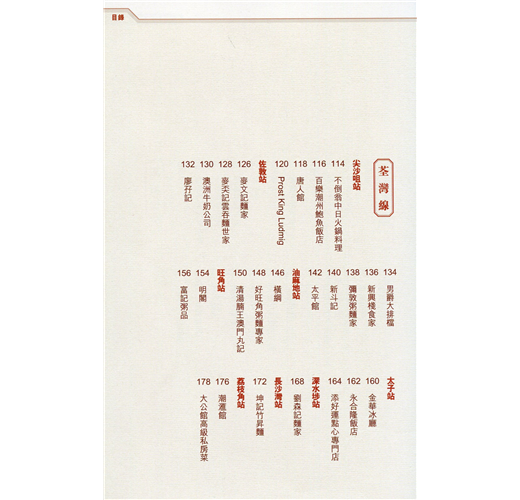 目錄
荃灣線
尖沙咀站
114 不倒翁中日火鍋料理
116 百樂潮州鮑魚飯店
118 唐人館
120 Prost King Ludmig
佐敦站
126 麥文記麵家
128 麥奀記雲吞麵世家
130 澳洲牛奶公司
132 廖孖記
134 男爵大排檔
136 新興棧食家
138 彌敦粥麵家
140 新斗記
142 太平館
油麻地站
146 橫綱
148 好旺角粥麵專家
150 清湯腩王澳門丸記
旺角站
154 明閣
156 富記粥品
太子站
160 金華冰廳
162 永合隆飯店
164 添好運點心專門店
深水埗站
168 劉森記麵家
長沙灣站
172 坤記竹昇麵
荔枝角站
176 潮滙館
178 大公館高級私房菜